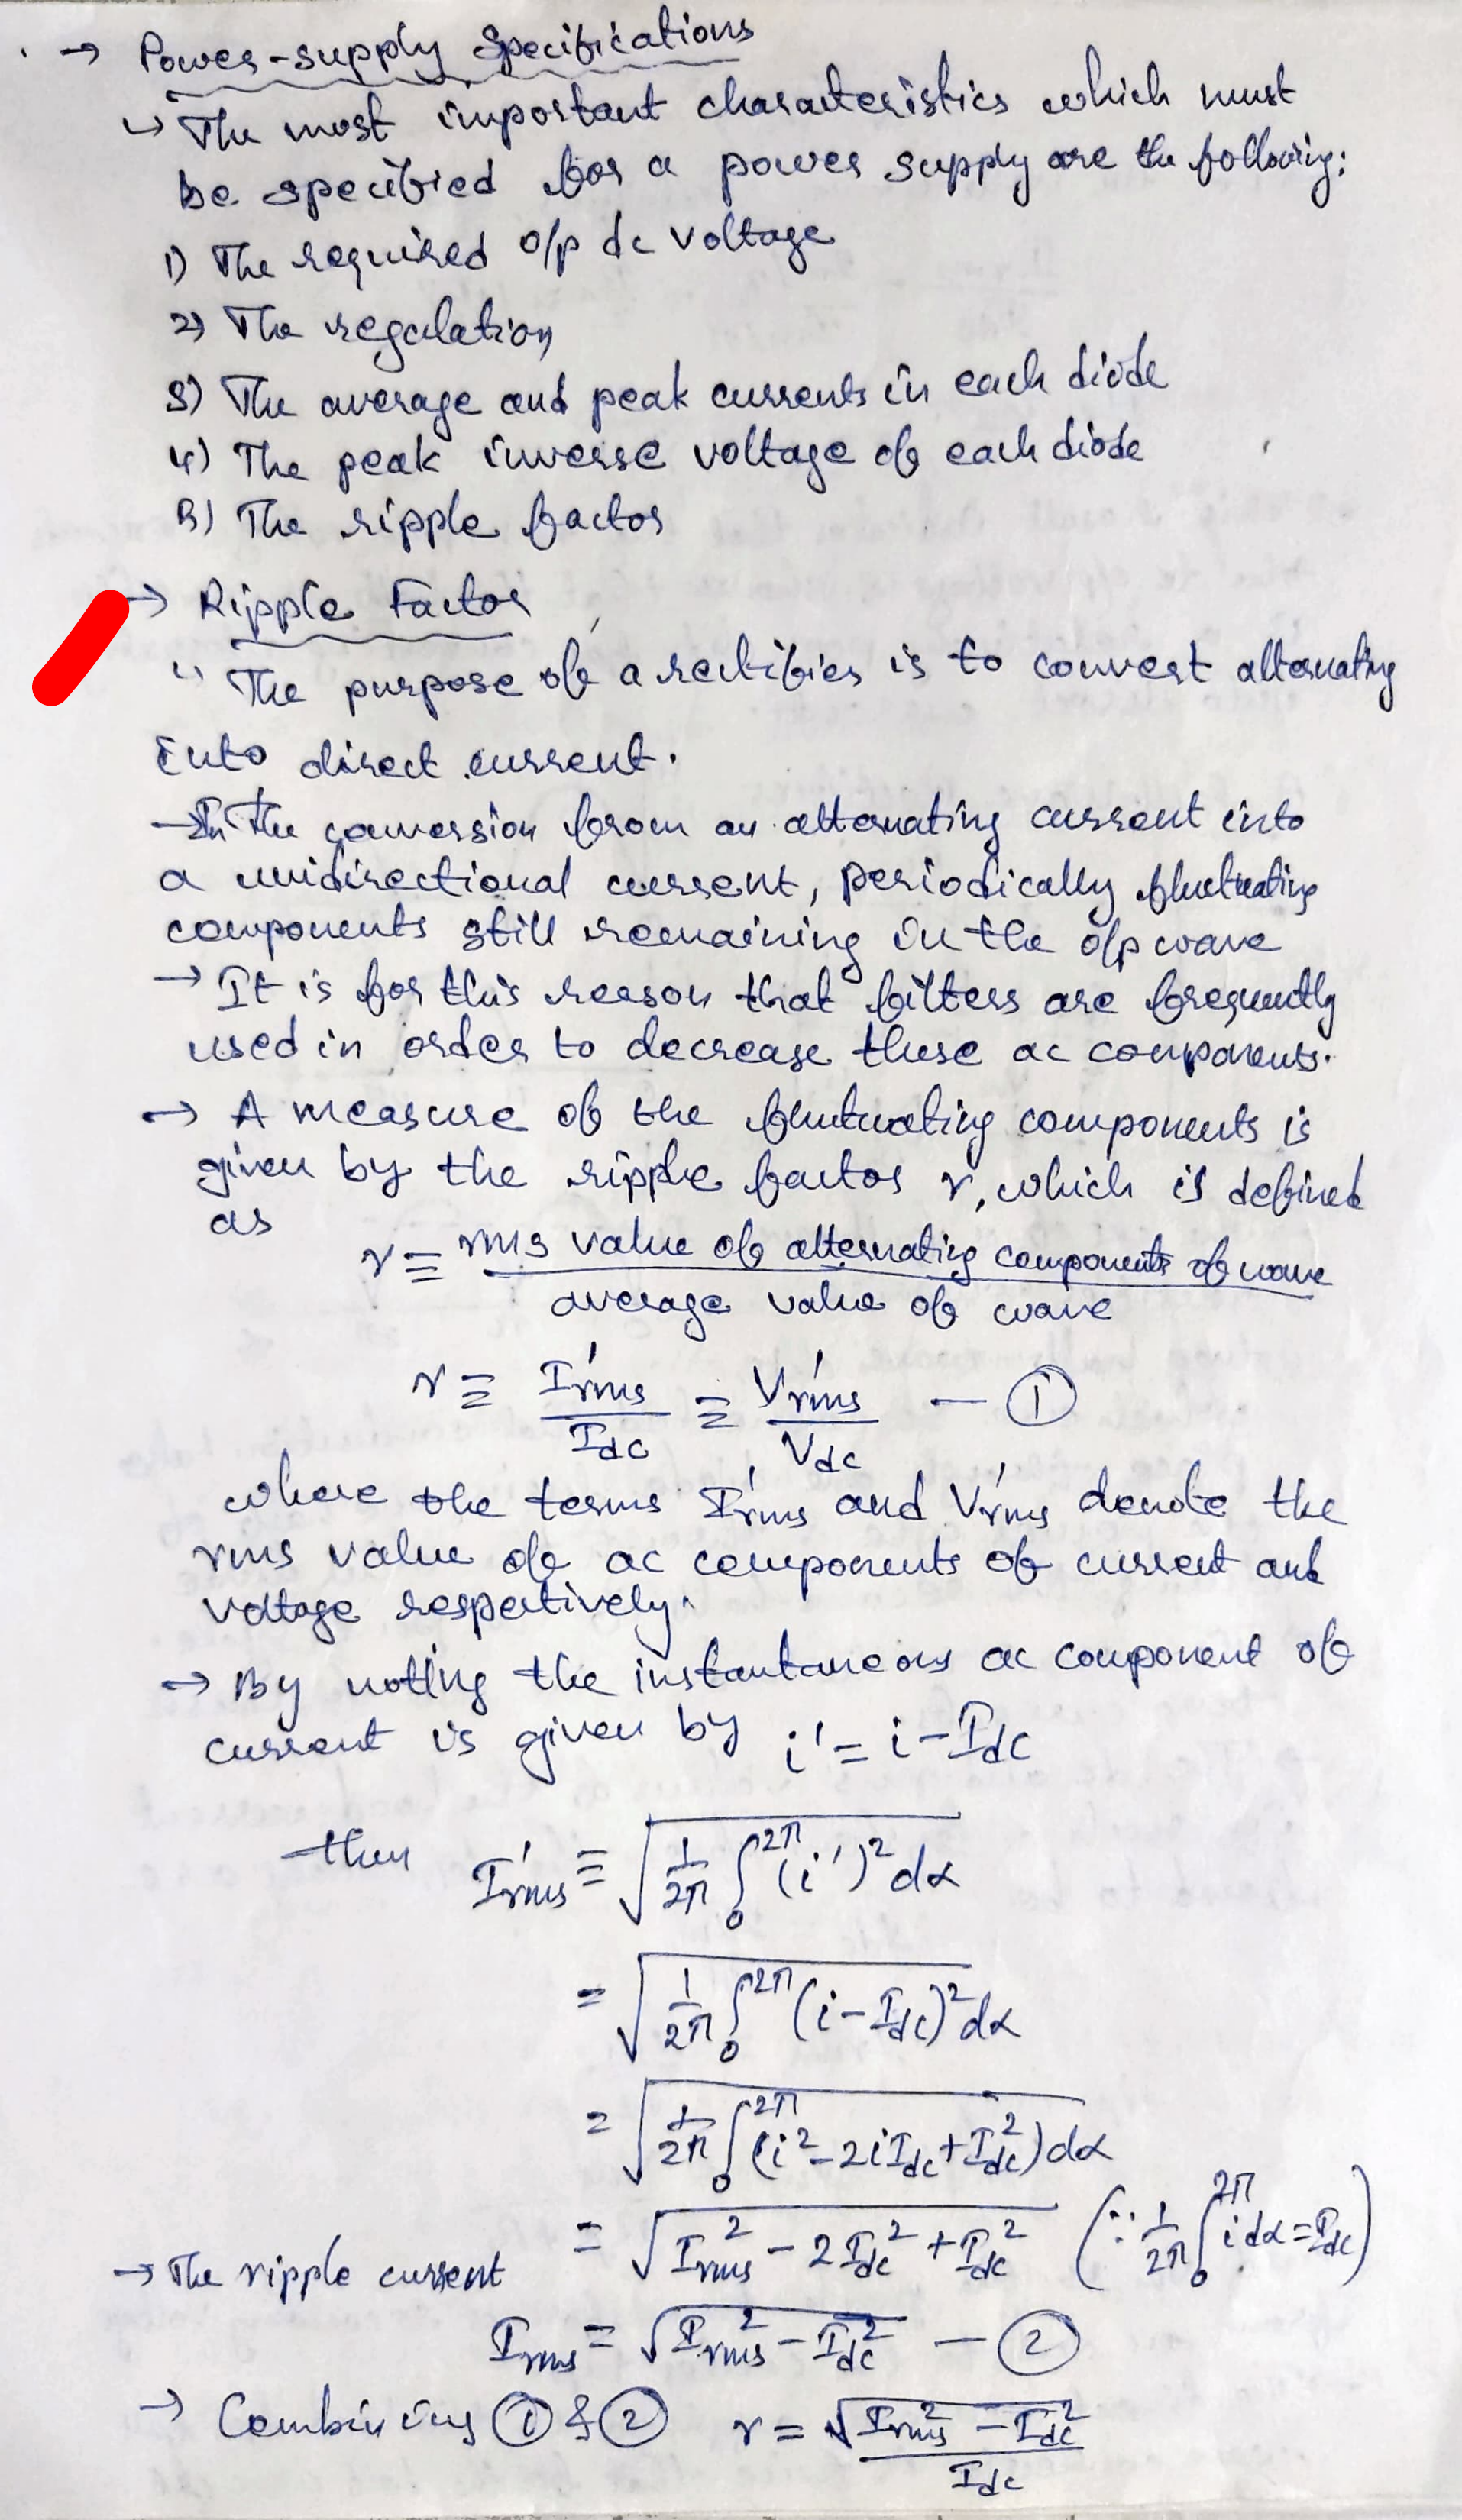 → Power-supply Specifications
↳ The most important characteristics which must
be specified for a power supply are the following:
1) The required o/p dc voltage
2) The regulation
3) The average and peak currents in each diode
4) The peak inverse voltage of each diode
5) The ripple factor
→ Ripple Factor
The purpose of a rectifier is to convert alternating
into direct current.
→ In the conversion from an alternating current into
a unidirectional current, periodically fluctuating
components still remaining in the o/p wave
→ It is for this reason that filters are frequently
used in order to decrease these ac components.
→ A measure of the fluctuating components is
given by the ripple factor r, which is defined
as
r ≡ rms value of alternating components of wave / average value of wave
r ≡ I'rms / Idc ≡ V'rms / Vdc — ①
where the terms I'rms and V'rms denote the
rms value of ac components of current and
voltage respectively.
→ By noting the instantaneous ac component of
current is given by i' = i - Idc
then I'rms ≡ √(1/2π ∫₀^2π (i')² dα)
= √(1/2π ∫₀^2π (i - Idc)² dα)
= √(1/2π ∫₀^2π (i² - 2iIdc + Idc²) dα)
= √(Irms² - 2Idc² + Idc²) (∵ 1/2π ∫₀^2π i dα = Idc)
→ The ripple current
Irms = √(Irms² - Idc²) — ②
→ Combining ① & ② r = √(Irms² - Idc²) / Idc